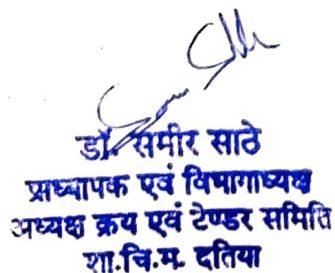 डॉ. समीर साठे
प्राध्यापक एवं विभागाध्यक्ष
अध्यक्ष क्रय एवं टेण्डर समिति
शा.चि.म. दतिया